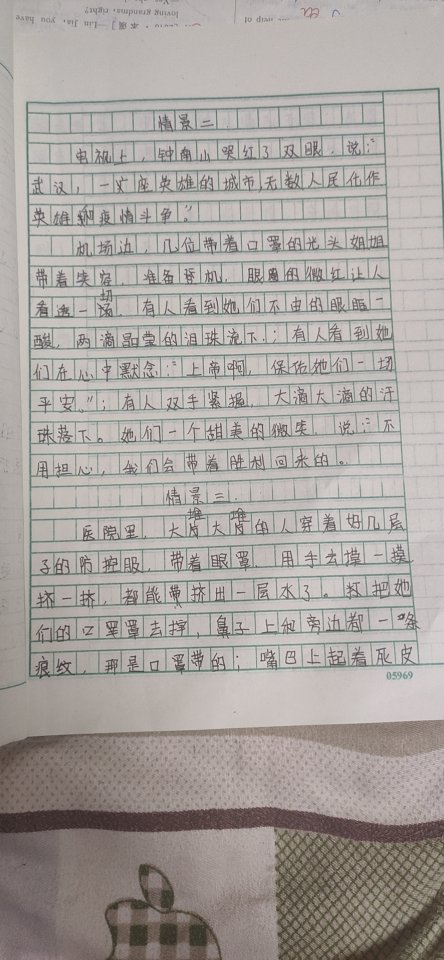 loving grandma, right?
—Lin Jia, you have
help of
情景二
电视上，钟南山哭红了双眼，说：“
武汉，一座英雄的城市，无数人民化作
英雄和疫情斗争。”
机场边，几位带着口罩的光头姐姐
带着笑容，准备登机，眼圈的微红让人
看透一切，有人看到她们不由的眼眶一
酸，两滴晶莹的泪珠流下；有人看到她
们在心中默念：“上帝啊，保佑她们一切
平安。”；有人双手紧握，大滴大滴的汗
珠落下。她们一个甜美的微笑，说：“不
用担心，我们会带着胜利回来的。
情景三
医院里，大堆大堆的人穿着好几层
子的防控服，带着眼罩，用手去摸一摸
挤一挤，都能挤出一层水了。把她
们的口罩罩去掉，鼻子上和旁边都一条
痕纹，那是口罩带的；嘴巴上起着死皮
05969